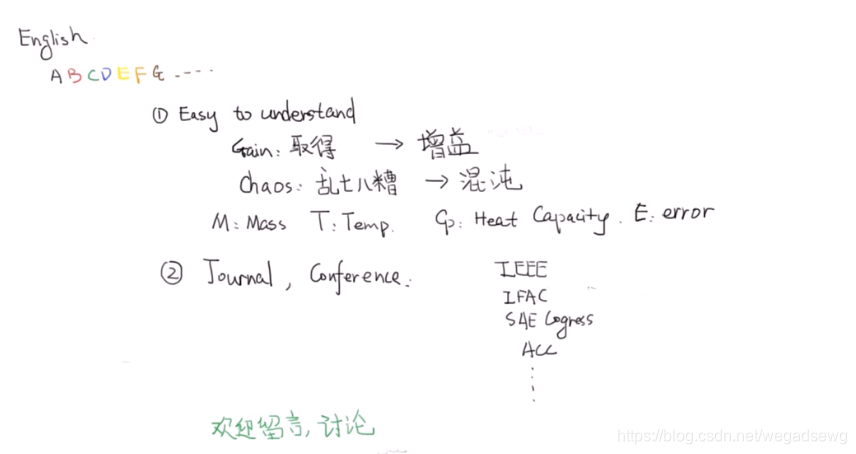 English
A B C D E F G ....
① Easy to understand
Gain: 取得 → 增益
Chaos: 乱七八糟 → 混沌
M: Mass T: Temp. Cp: Heat Capacity. E: error
② Journal, Conference:
IEEE
IFAC
SAE Cogress
ACC
欢迎留言, 讨论
https://blog.csdn.net/wegadsewg